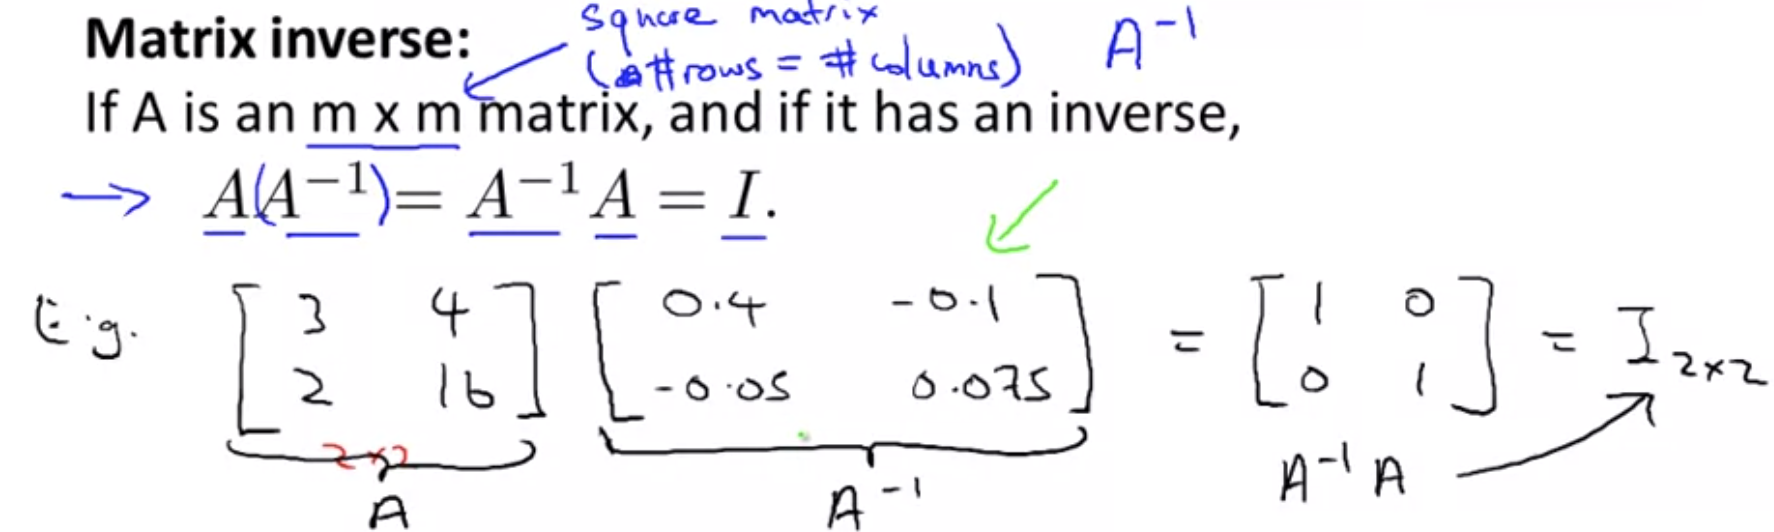 Matrix inverse:
square matrix
(#rows = #columns)
A⁻¹
If A is an m x m matrix, and if it has an inverse,
→ A(A⁻¹) = A⁻¹A = I.
E.g. [3 4; 2 16] [0.4 -0.1; -0.05 0.075] = [1 0; 0 1] = I 2x2
2x2
A
A⁻¹
A⁻¹A